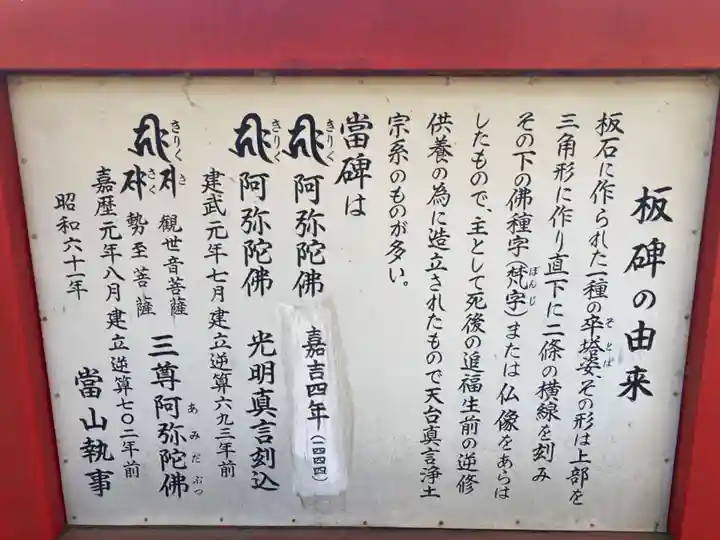 板碑の由来
板石に作られた一種の卒塔婆、その形は上部を
三角形に作り直下に二條の横線を刻み
その下の佛種字(梵字)または仏像をあらは
したもので、主として死後の追福生前の逆修
供養の為に造立されたもので天台真言浄土
宗系のものが多い。
當碑は
きりく 阿弥陀佛 嘉吉四年(一四四四)
きりく 阿弥陀佛 光明真言刻込
建武元年七月建立逆算六九三年前
きりく さ 観世音菩薩
さく 勢至菩薩
三尊阿弥陀佛
嘉歴元年八月建立逆算七〇二年前
昭和六十一年 當山執事